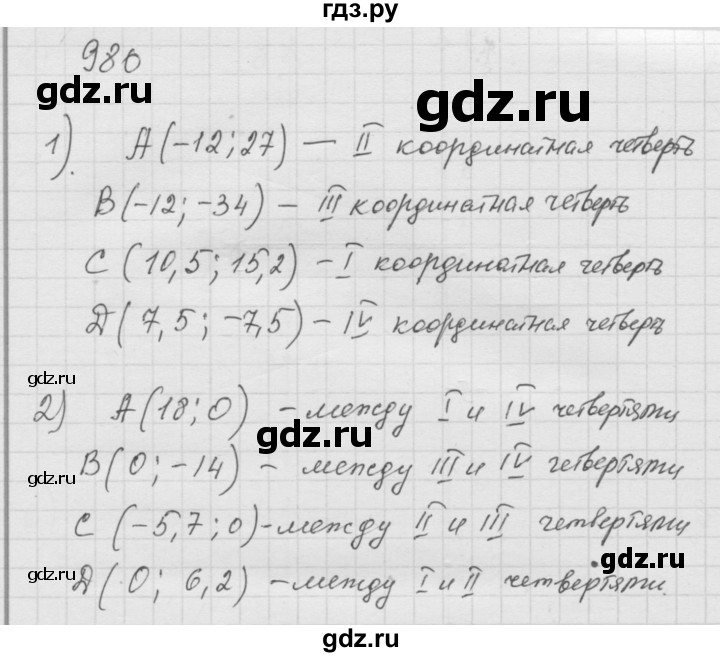 гдз.ру
980
gdz.ru
gdz.ru
1). А(-12; 27) — II координатная четверть
В(-12; -34) - III координатная четверть
С (10,5; 15,2) - I координатная четверть
Д( 7,5; -7,5) - IV координатная четверть
gdz.ru
2) А(18; 0) - между I и IV четвертями
gdz.ru
В( 0; -14) - между III и IV четвертями
gdz.ru
С (-5,7; 0) - между II и III четвертями
gdz.ru
Д( 0; 6,2) - между I и II четвертями.
gdz.ru
gdz.ru